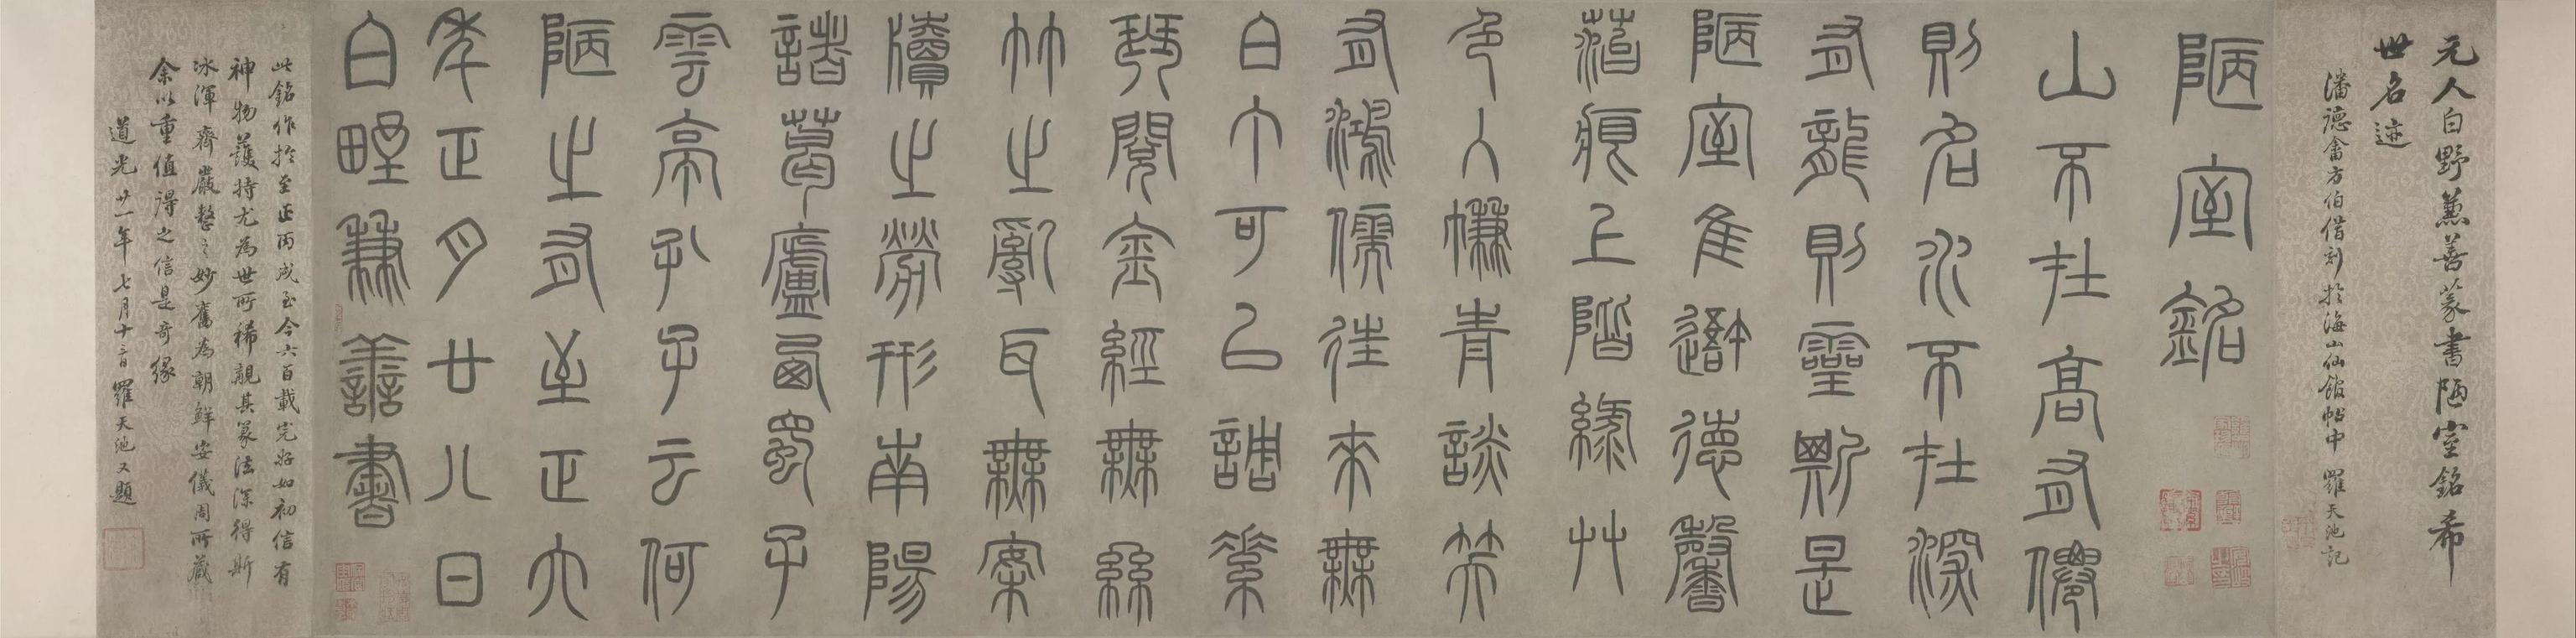 元人白野兼善篆書陋室銘希
世名迹
潘德畬方伯借刻於海山仙館帖中 羅天池記
陋室銘
山不在高有僊
則名水不在深
有龍則靈斯是
陋室隹吾德馨
菭痕上階綠艸
色入㡘青談笑
有鴻儒往來無
白丁可以調素
琴閱金經無絲
竹之亂耳無案
牘之勞形南陽
諸葛廬西蜀子
雲亭孔子云何
陋之有至正六
年正月廿八日
白野兼善書
此銘作於至正丙戌至今六百載完好如初信有
神物護持尤為世所稀覯其篆法深得斯
冰渾齊嚴整之妙舊為朝鮮安儀周所藏
余以重值得之信是奇緣
道光廿一年七月十二日羅天池又題